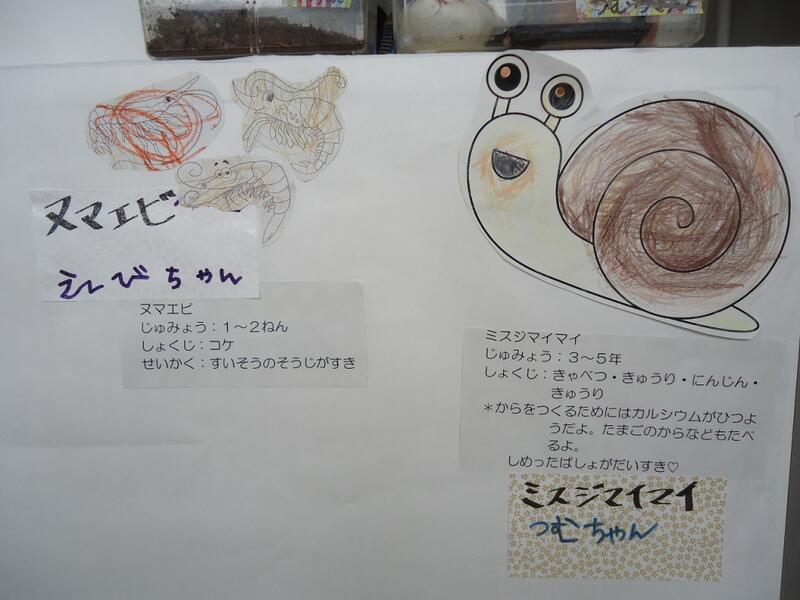 ヌマエビ
えびちゃん
ヌマエビ
じゅみょう：１～２ねん
しょくじ：コケ
せいかく：すいそうのそうじがすき
ミスジマイマイ
じゅみょう：３～５年
しょくじ：きゃべつ・きゅうり・にんじん・
きゅうり
＊からをつくるためにはカルシウムがひつよ
うだよ。たまごのからなどもたべ
るよ。
しめったばしょがだいすき♡
ミスジマイマイ
つむちゃん